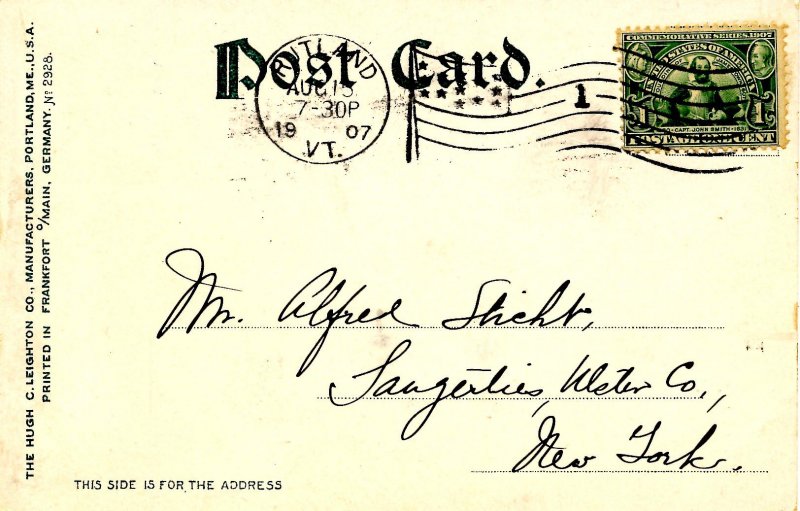 Post Card.
RUTLAND
AUG 13
7-30P
19 07
VT.
1
COMMEMORATIVE SERIES, 1907
UNITED STATES OF AMERICA
CAPT. JOHN SMITH
1 1
POSTAGE ONE CENT
Mr. Alfred Sticht,
Saugerties, Ulster Co.,
New York.
THIS SIDE IS FOR THE ADDRESS
THE HUGH C. LEIGHTON CO., MANUFACTURERS, PORTLAND, ME., U.S.A.
PRINTED IN FRANKFORT O/MAIN, GERMANY. No 2928.